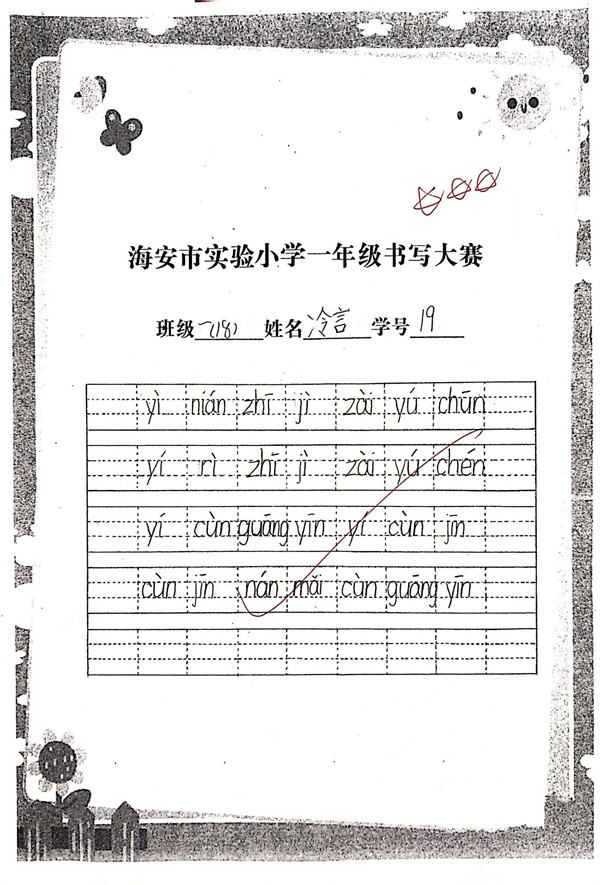 海安市实验小学一年级书写大赛
班级一(18) 姓名冷言 学号19
yì nián zhī jì zài yú chūn
yí rì zhī jì zài yú chén
yí cùn guāng yīn yí cùn jīn
cùn jīn nán mǎi cùn guāng yīn